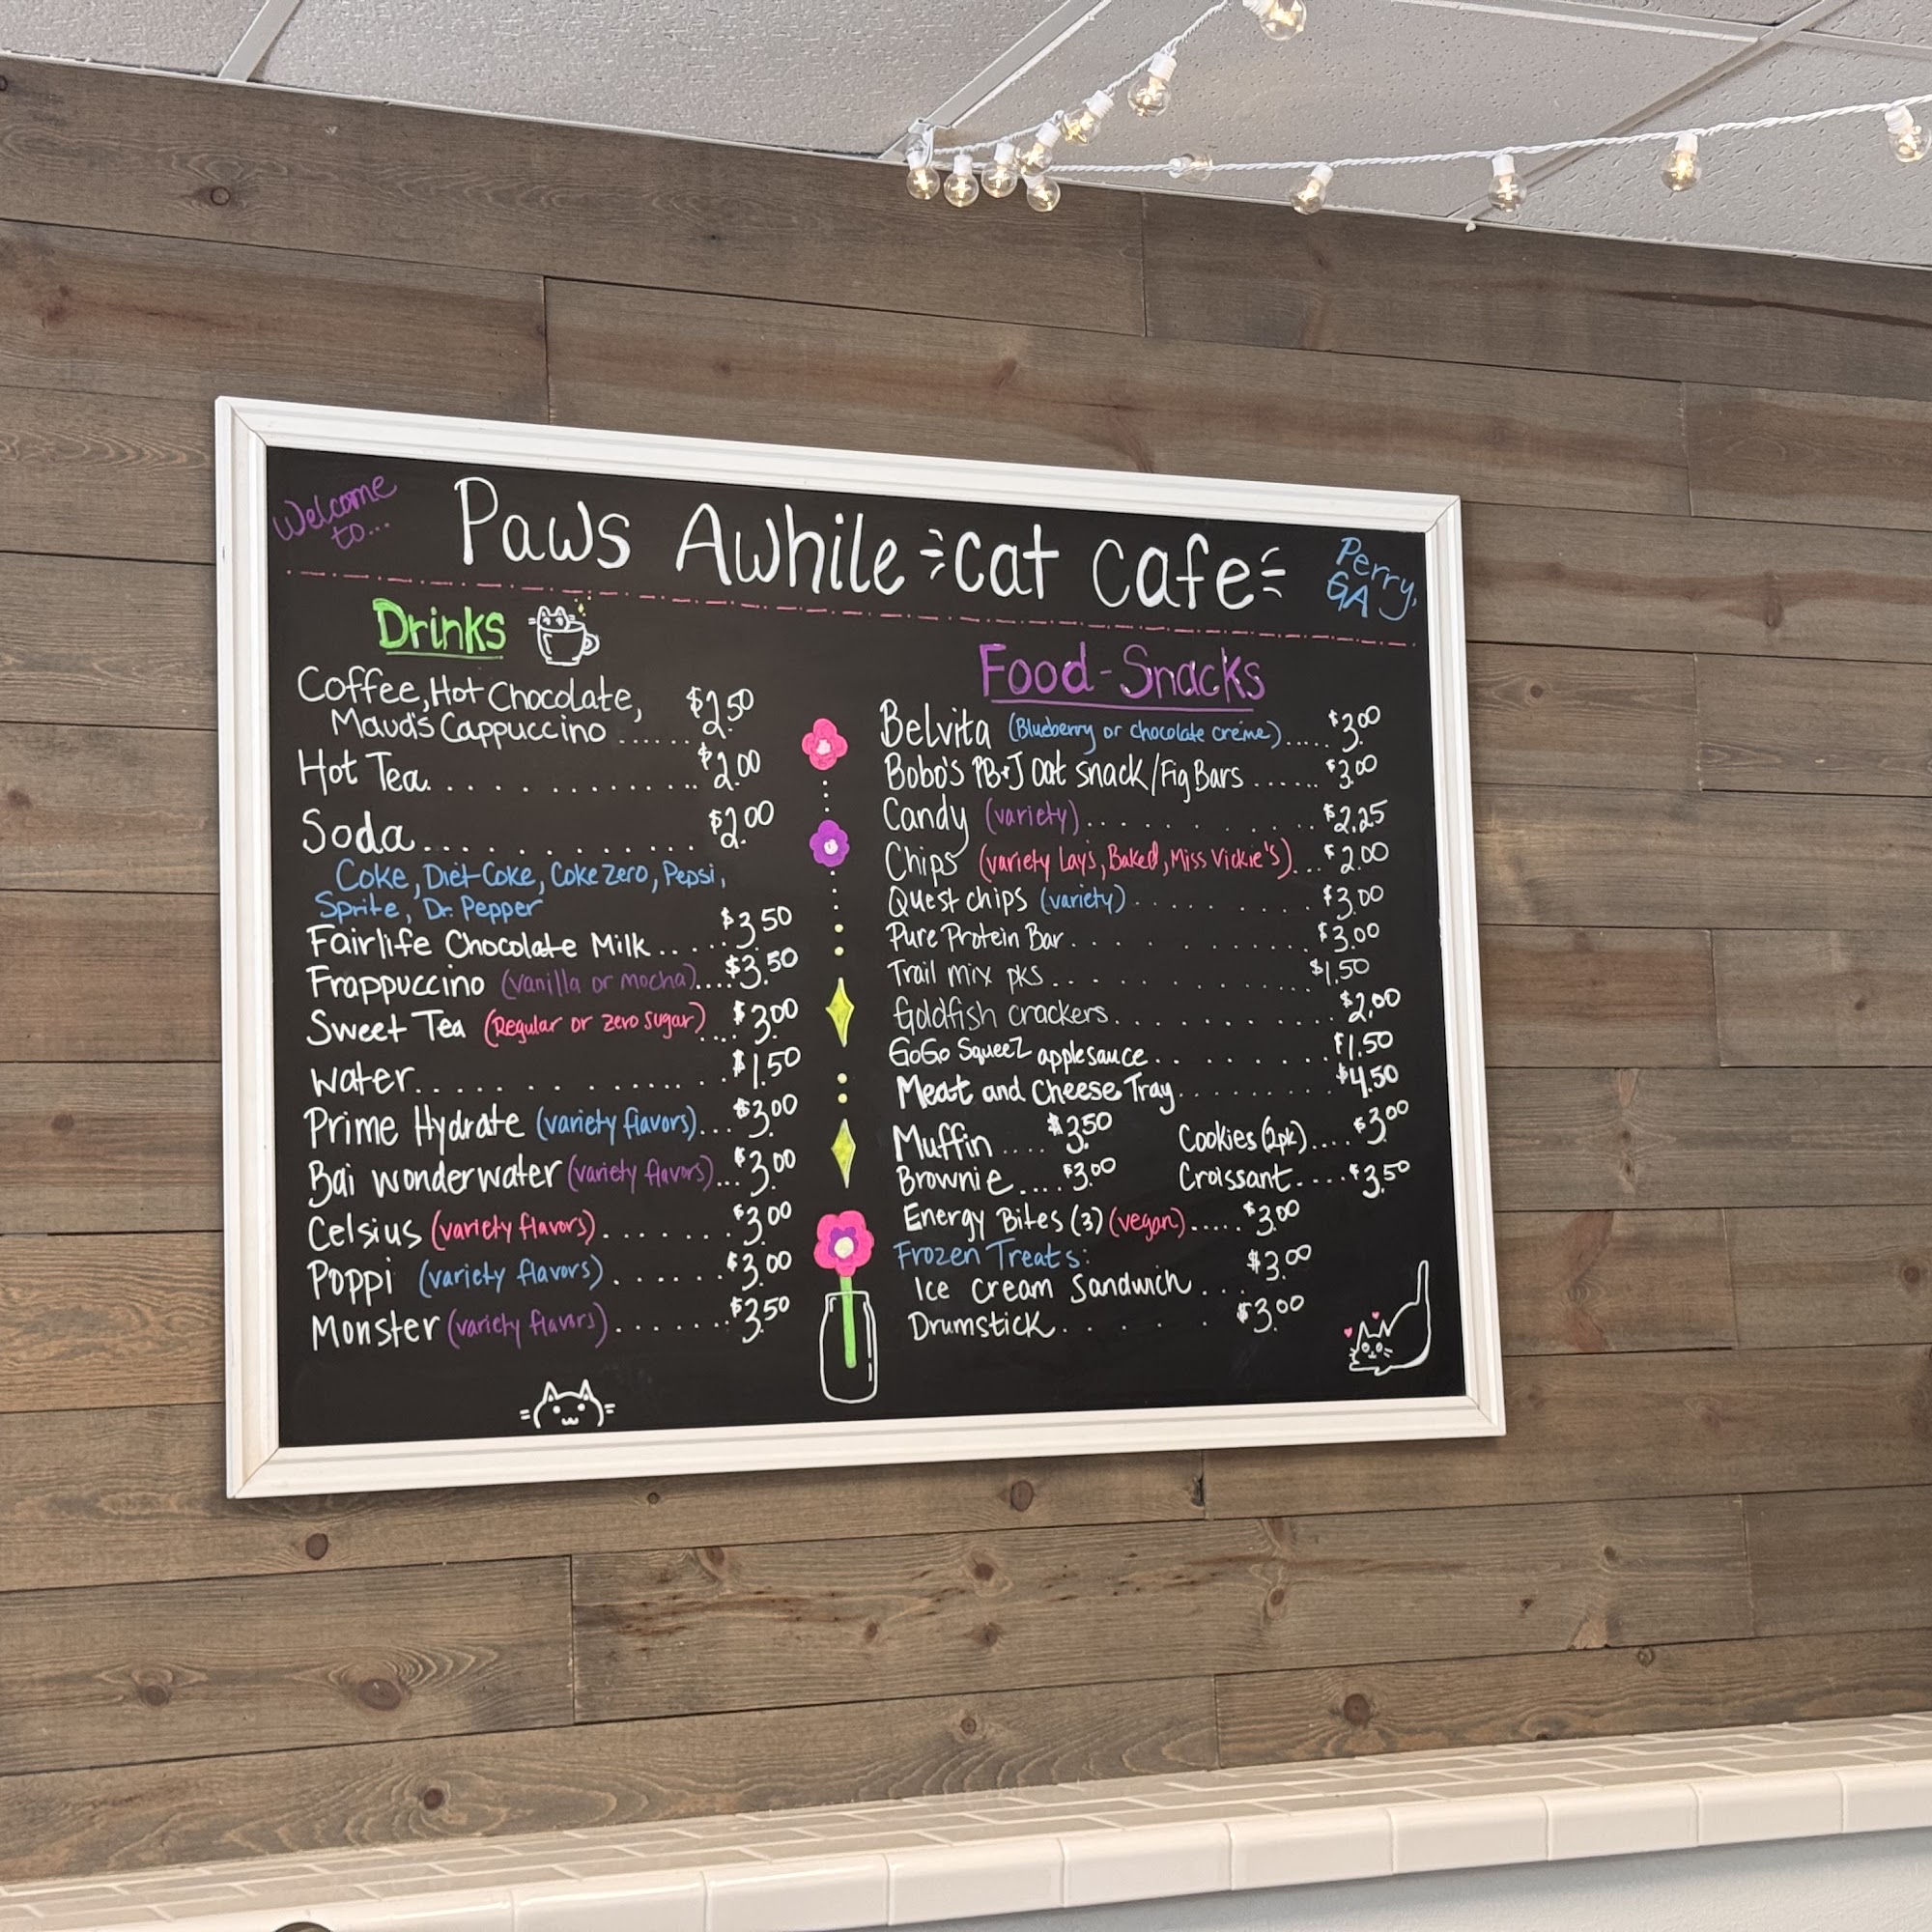 Welcome
to...
Paws Awhile cat cafe
Perry,
GA
Drinks
Coffee, Hot Chocolate,
Maud's Cappuccino ...... $2.50
Hot Tea............... $2.00
Soda............. $2.00
Coke, Diet-Coke, Coke Zero, Pepsi,
Sprite, Dr. Pepper
Fairlife Chocolate Milk...... $3.50
Frappuccino (vanilla or mocha).... $3.50
Sweet Tea (Regular or zero sugar).... $3.00
water............... $1.50
Prime Hydrate (variety flavors)... $3.00
Bai wonderwater (variety flavors)... $3.00
Celsius (variety flavors)....... $3.00
Poppi (variety flavors)....... $3.00
Monster (variety flavors)....... $3.50
Food-Snacks
Belvita (Blueberry or chocolate créme)..... $3.00
Bobo's PB+J Oat snack/Fig Bars ...... $3.00
Candy (variety)............ $2.25
Chips (variety Lay's, Baked, Miss Vickie's)... $2.00
Quest chips (variety).......... $3.00
Pure Protein Bar............ $3.00
Trail mix pks............ $1.50
Goldfish crackers............ $2.00
GoGo SqueeZ applesauce......... $1.50
Meat and Cheese Tray......... $4.50
Muffin.... $3.50 Cookies (2pk).... $3.00
Brownie.... $3.00 Croissant.... $3.50
Energy Bites (3) (vegan)..... $3.00
Frozen Treats:
Ice Cream Sandwich... $3.00
Drumstick...... $3.00